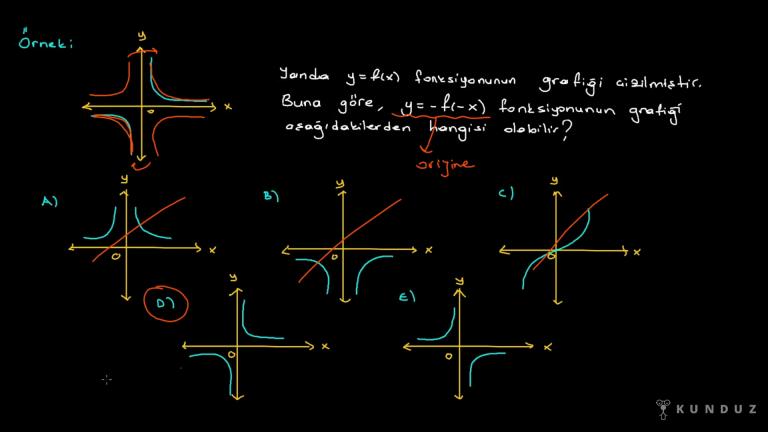 Örnek:
y
x
o
Yanda y=f(x) fonksiyonunun grafiği çizilmiştir.
Buna göre, y=-f(-x) fonksiyonunun grafiği
aşağıdakilerden hangisi olabilir?
orijine
A)
y
x
o
B)
y
x
o
C)
y
x
o
D)
y
x
o
E)
y
x
o
KUNDUZ